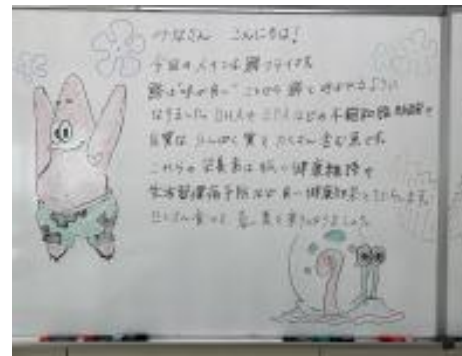 みなさん こんにちは!
今日のメインは鯵フライです。
鯵は"味が良い"ことから鯵と呼ばれるように
なりました。DHAやEPAなどの不飽和脂肪酸や
良質なたんぱく質をたくさん含む魚です。
これらの栄養素は 健康維持や
生活習慣病予防など 良い健康効果をもたらします。
たくさん食べて 暑い夏を乗りきりましょう。